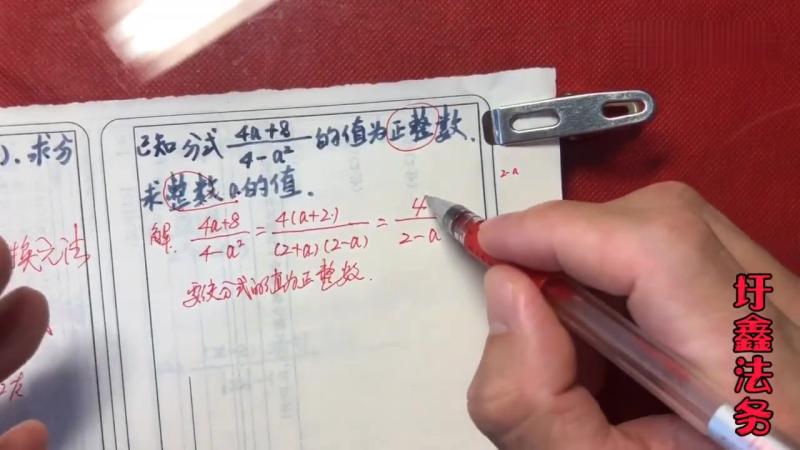 已知分式 (4a+8)/(4-a²) 的值为正整数.
求整数 a 的值.
解. (4a+8)/(4-a²) = 4(a+2)/((2+a)(2-a)) = 4/(2-a)
要使分式的值为正整数.
2-a
). 求分
换元法
圩鑫法务